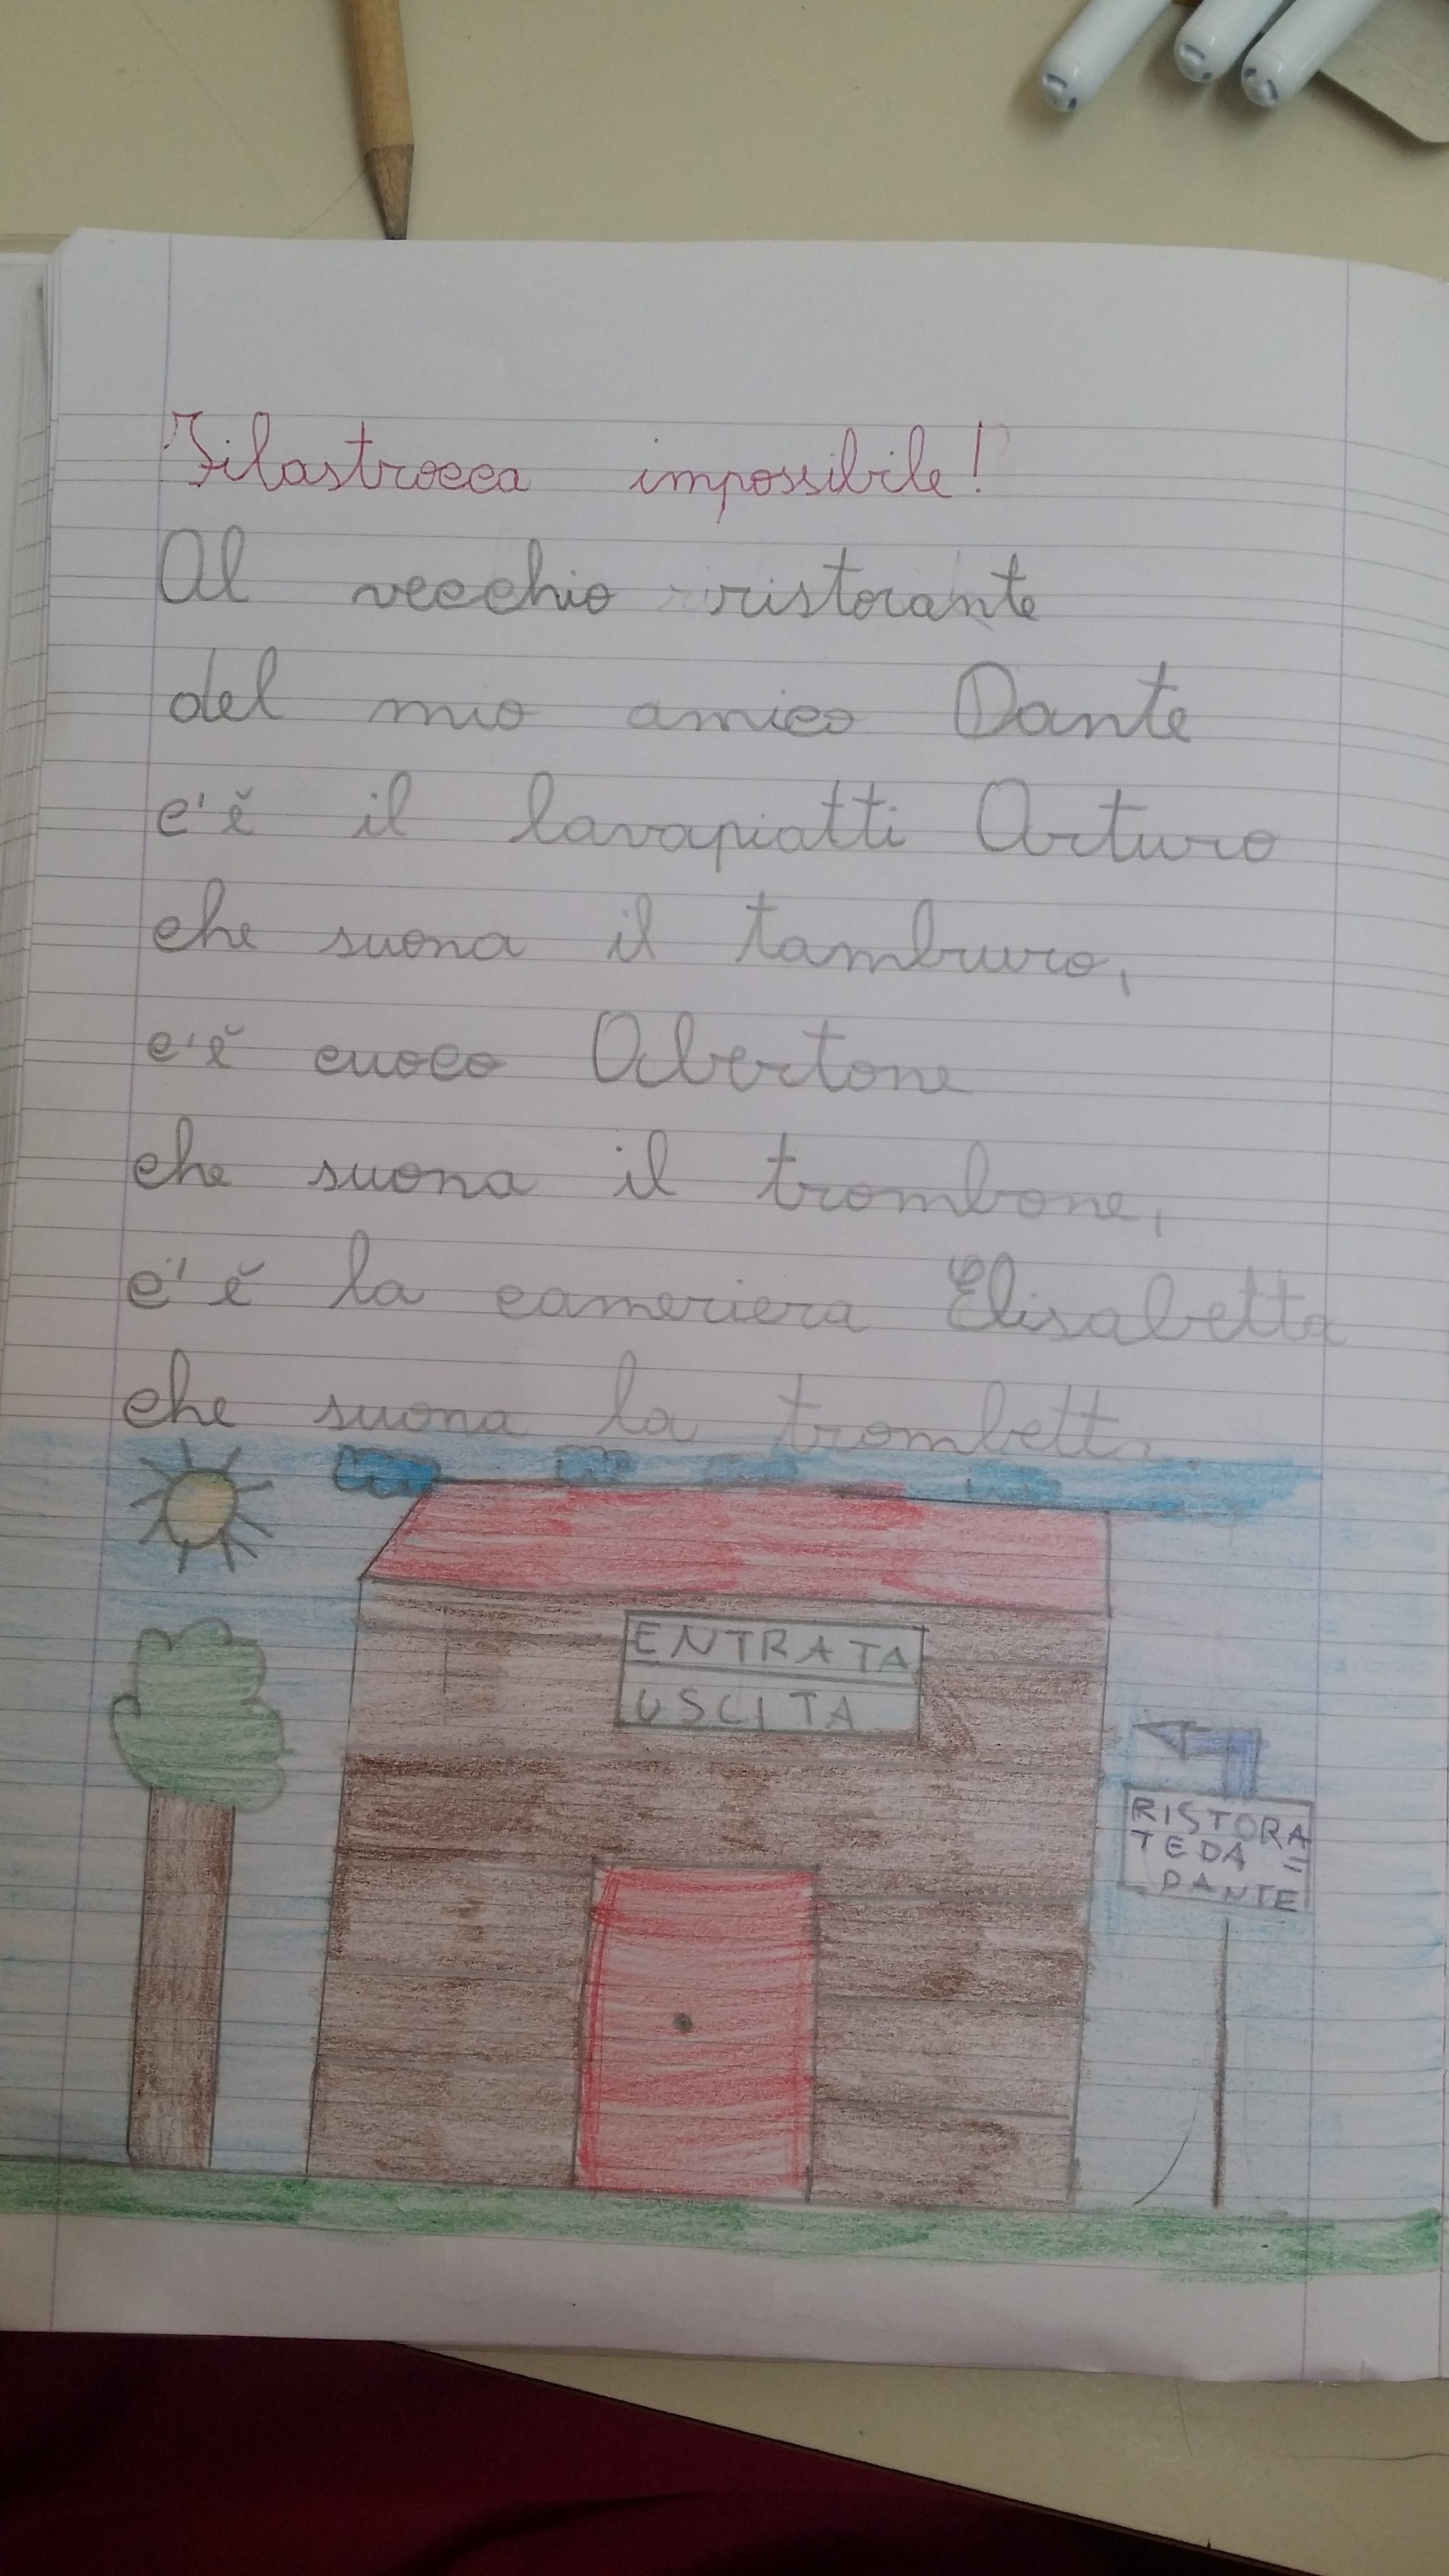 Filastrocca impossibile!
Al vecchio ristorante
del mio amico Dante
c'è il lavapiatti Arturo
che suona il tamburo,
c'è cuoco Albertone
che suona il trombone,
c'è la cameriera Elisabetta
che suona la trombett
ENTRATA
USCITA
RISTORA
TE DA =
DANTE